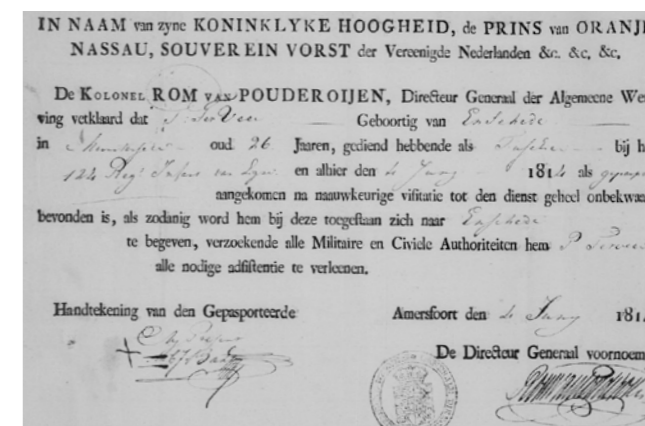 IN NAAM van zyne KONINKLYKE HOOGHEID, de PRINS van ORANJE
NASSAU, SOUVEREIN VORST der Vereenigde Nederlanden &c. &c. &c.
De KOLONEL ROM VAN POUDEROIJEN, Directeur Generaal der Algemeene We
ving verklaard dat P. TerVeer Geboortig van Enschede
in oud 26 Jaaren, gediend hebbende als bij h
124 Reg. en alhier den 4 Juny 1814 als
aangekomen na naauwkeurige visitatie tot den dienst geheel onbekwaa
bevonden is, als zodanig word hem bij deze toegestaan zich naar Enschede
te begeven, verzoekende alle Militaire en Civiele Authoriteiten hem P
alle nodige adsistentie te verleenen.
Handtekening van den Gepasporteerde
Amersfoort den 4 Juny 181
De Directeur Generaal voornoem